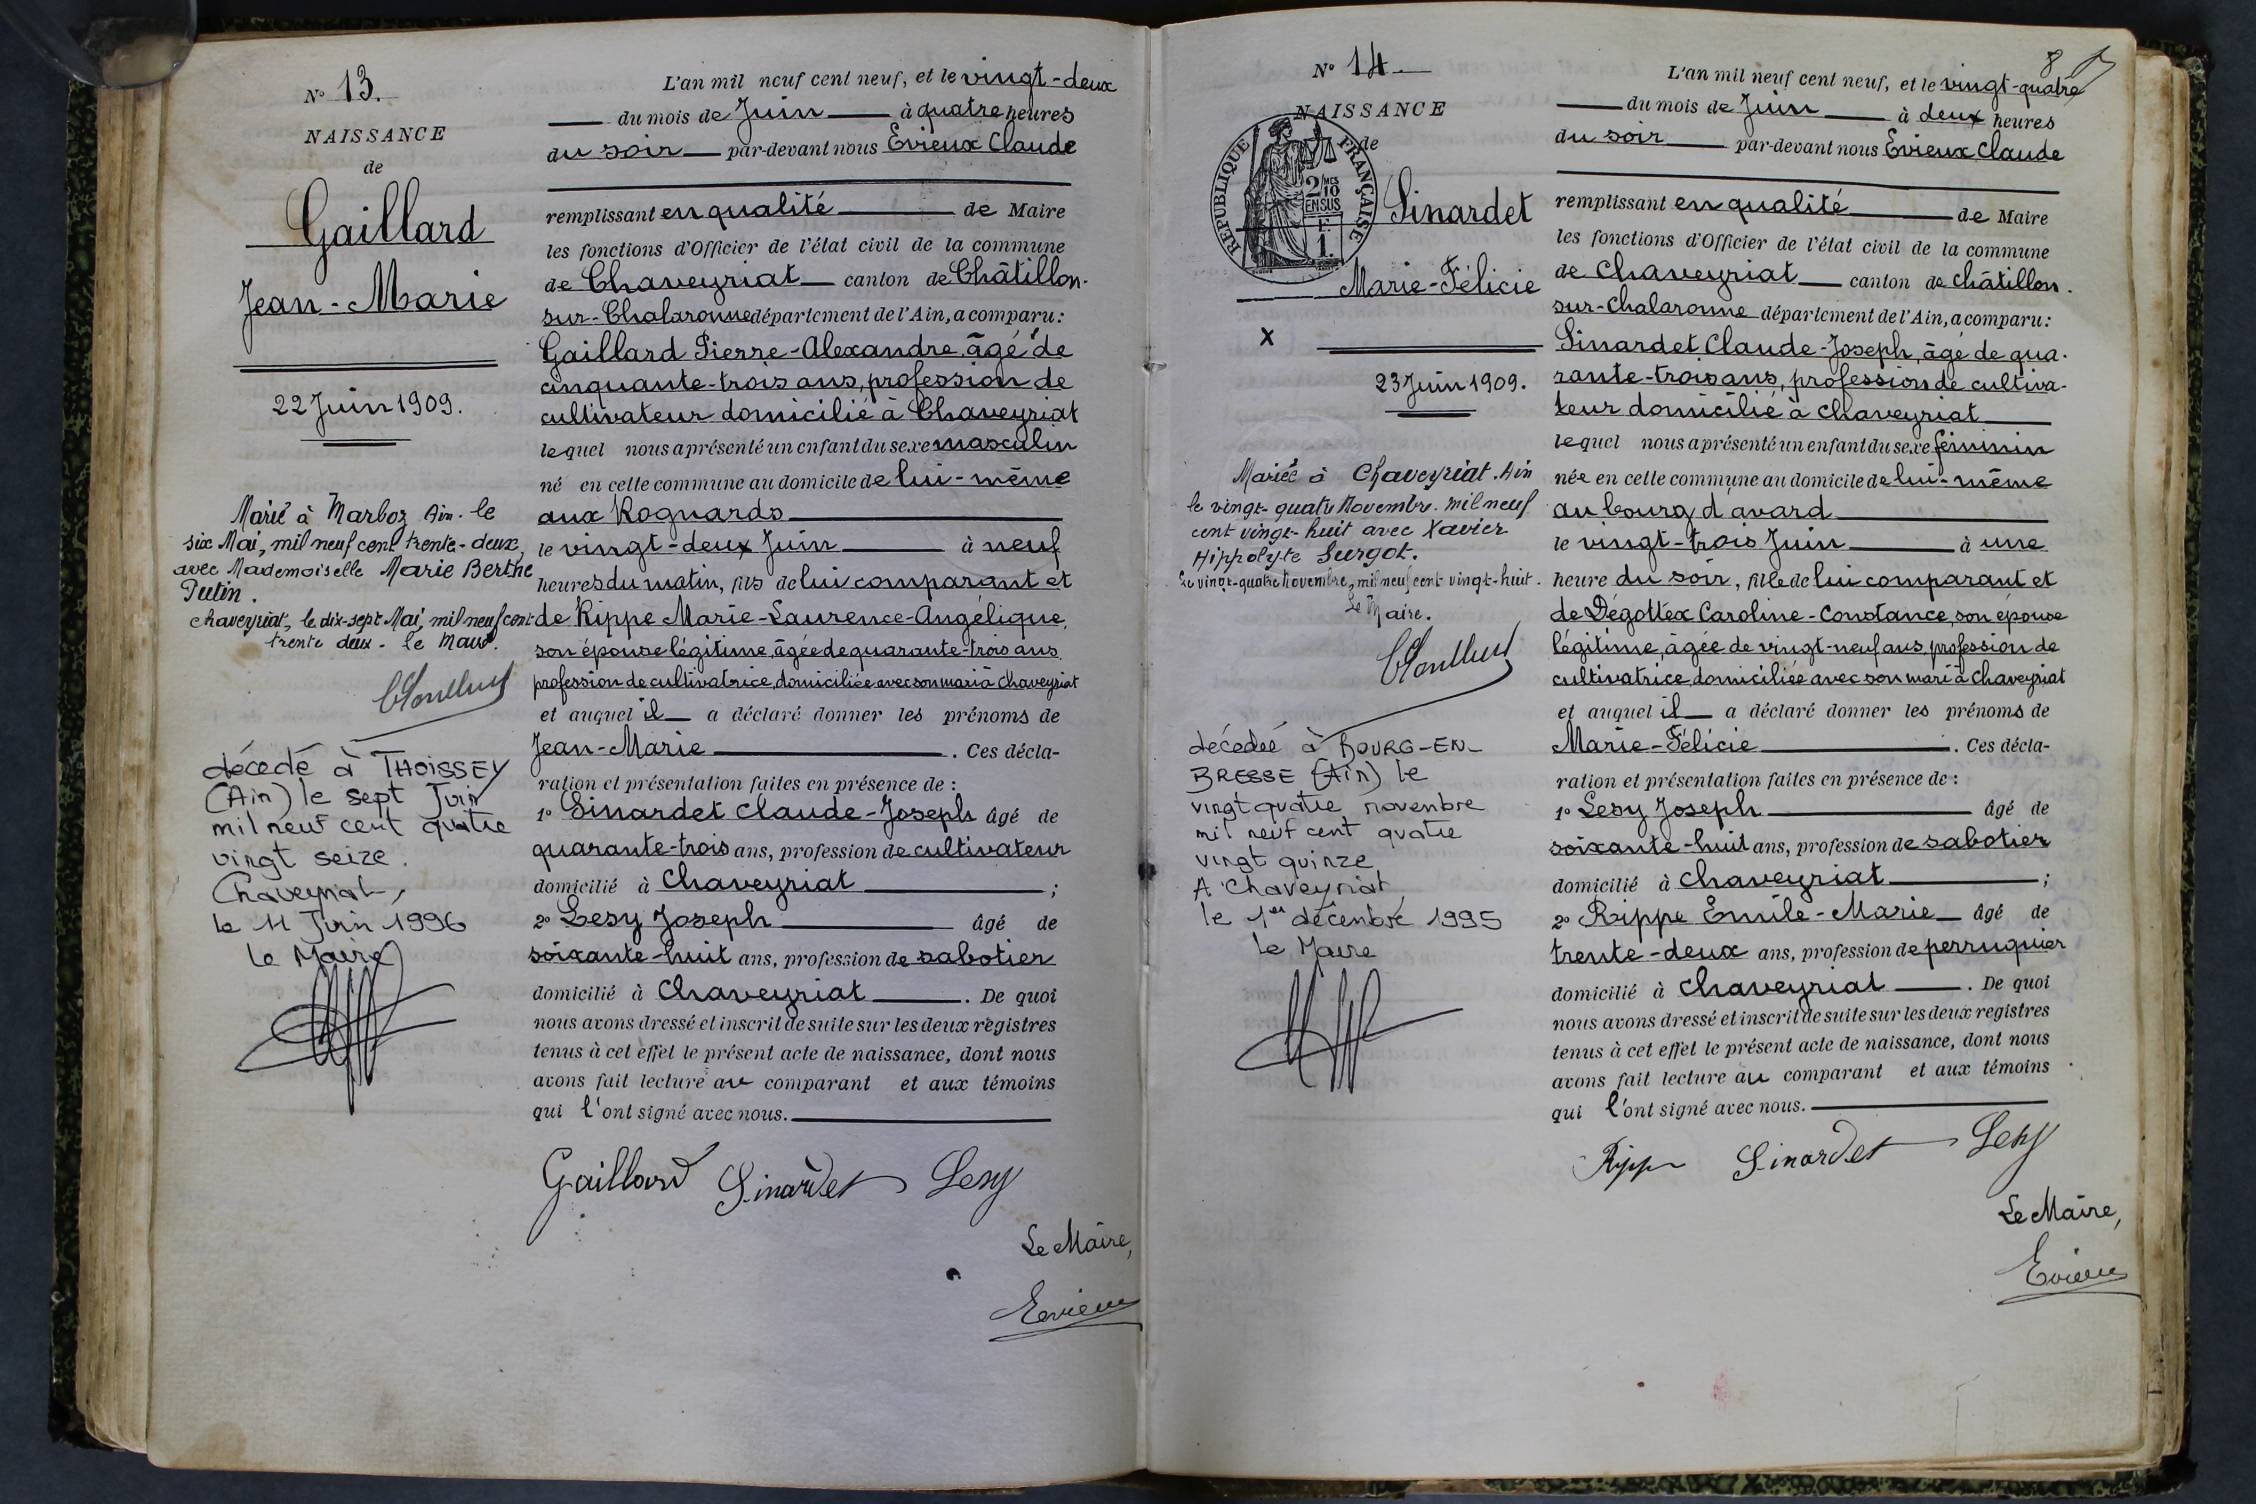 N° 13.
NAISSANCE
de
Gaillard
Jean-Marie
22 Juin 1909.
Marié à Marboz Ain. le
six Mai, mil neuf cent trente-deux,
avec Mademoiselle Marie Berthe
Putin.
Chaveyriat, le dix-sept Mai, mil neuf cent
trente deux. le Maire.
décédé à THOISSEY
(Ain) le sept Juin
mil neuf cent quatre
vingt seize.
Chaveyriat,
le 11 Juin 1996
le Maire
L'an mil neuf cent neuf, et le vingt-deux
du mois de Juin à quatre heures
du soir par-devant nous Evieux Claude
remplissant en qualité de Maire
les fonctions d'Officier de l'état civil de la commune
de Chaveyriat canton de Châtillon-
sur-Chalaronne département de l'Ain, a comparu:
Gaillard Pierre-Alexandre, âgé de
cinquante-trois ans, profession de
cultivateur domicilié à Chaveyriat
lequel nous a présenté un enfant du sexe masculin
né en cette commune au domicile de lui-même
aux Rognards
le vingt-deux Juin à neuf
heures du matin, fils de lui comparant et
de Rippe Marie-Laurence-Angélique,
son épouse légitime, âgée de quarante-trois ans
profession de cultivatrice, domiciliée avec son mari à Chaveyriat
et auquel il a déclaré donner les prénoms de
Jean-Marie . Ces décla-
ration et présentation faites en présence de :
1° Sinardet Claude-Joseph âgé de
quarante-trois ans, profession de cultivateur
domicilié à Chaveyriat ;
2° Lesy Joseph âgé de
soixante-huit ans, profession de sabotier
domicilié à Chaveyriat . De quoi
nous avons dressé et inscrit de suite sur les deux registres
tenus à cet effet le présent acte de naissance, dont nous
avons fait lecture au comparant et aux témoins
qui l'ont signé avec nous.
Gaillard Sinardet Lesy
Le Maire,
Evieux
8
N° 14
NAISSANCE
de
RÉPUBLIQUE FRANÇAISE
2/10 MES
EN SUS
1 F.
Sinardet
Marie-Félicie
X
23 Juin 1909.
Mariée à Chaveyriat. Ain
le vingt-quatre Novembre. mil neuf
cent vingt-huit avec Xavier
Hippolyte Surgot.
Le vingt-quatre Novembre, mil neuf cent vingt-huit.
Le Maire.
décédée à BOURG-EN-
BRESSE (Ain) le
vingt quatre novembre
mil neuf cent quatre
vingt quinze
A Chaveyriat,
le 1er décembre 1995
le Maire
L'an mil neuf cent neuf, et le vingt-quatre
du mois de Juin à deux heures
du soir par-devant nous Evieux Claude
remplissant en qualité de Maire
les fonctions d'Officier de l'état civil de la commune
de Chaveyriat canton de Châtillon.
sur-Chalaronne département de l'Ain, a comparu:
Sinardet Claude-Joseph, âgé de qua-
rante-trois ans, profession de cultiva-
teur domicilié à Chaveyriat
lequel nous a présenté un enfant du sexe féminin
née en cette commune au domicile de lui-même
au bourg d'avard
le vingt-trois Juin à une
heure du soir, fille de lui comparant et
de Dégottex Caroline-Constance, son épouse
légitime, âgée de vingt-neuf ans, profession de
cultivatrice, domiciliée avec son mari à Chaveyriat
et auquel il a déclaré donner les prénoms de
Marie-Félicie . Ces décla-
ration et présentation faites en présence de :
1° Lesy Joseph âgé de
soixante-huit ans, profession de sabotier
domicilié à Chaveyriat ;
2° Rippe Emile-Marie âgé de
trente-deux ans, profession de perruquier
domicilié à Chaveyriat . De quoi
nous avons dressé et inscrit de suite sur les deux registres
tenus à cet effet le présent acte de naissance, dont nous
avons fait lecture au comparant et aux témoins
qui l'ont signé avec nous.
Rippe Sinardet Lesy
Le Maire,
Evieux